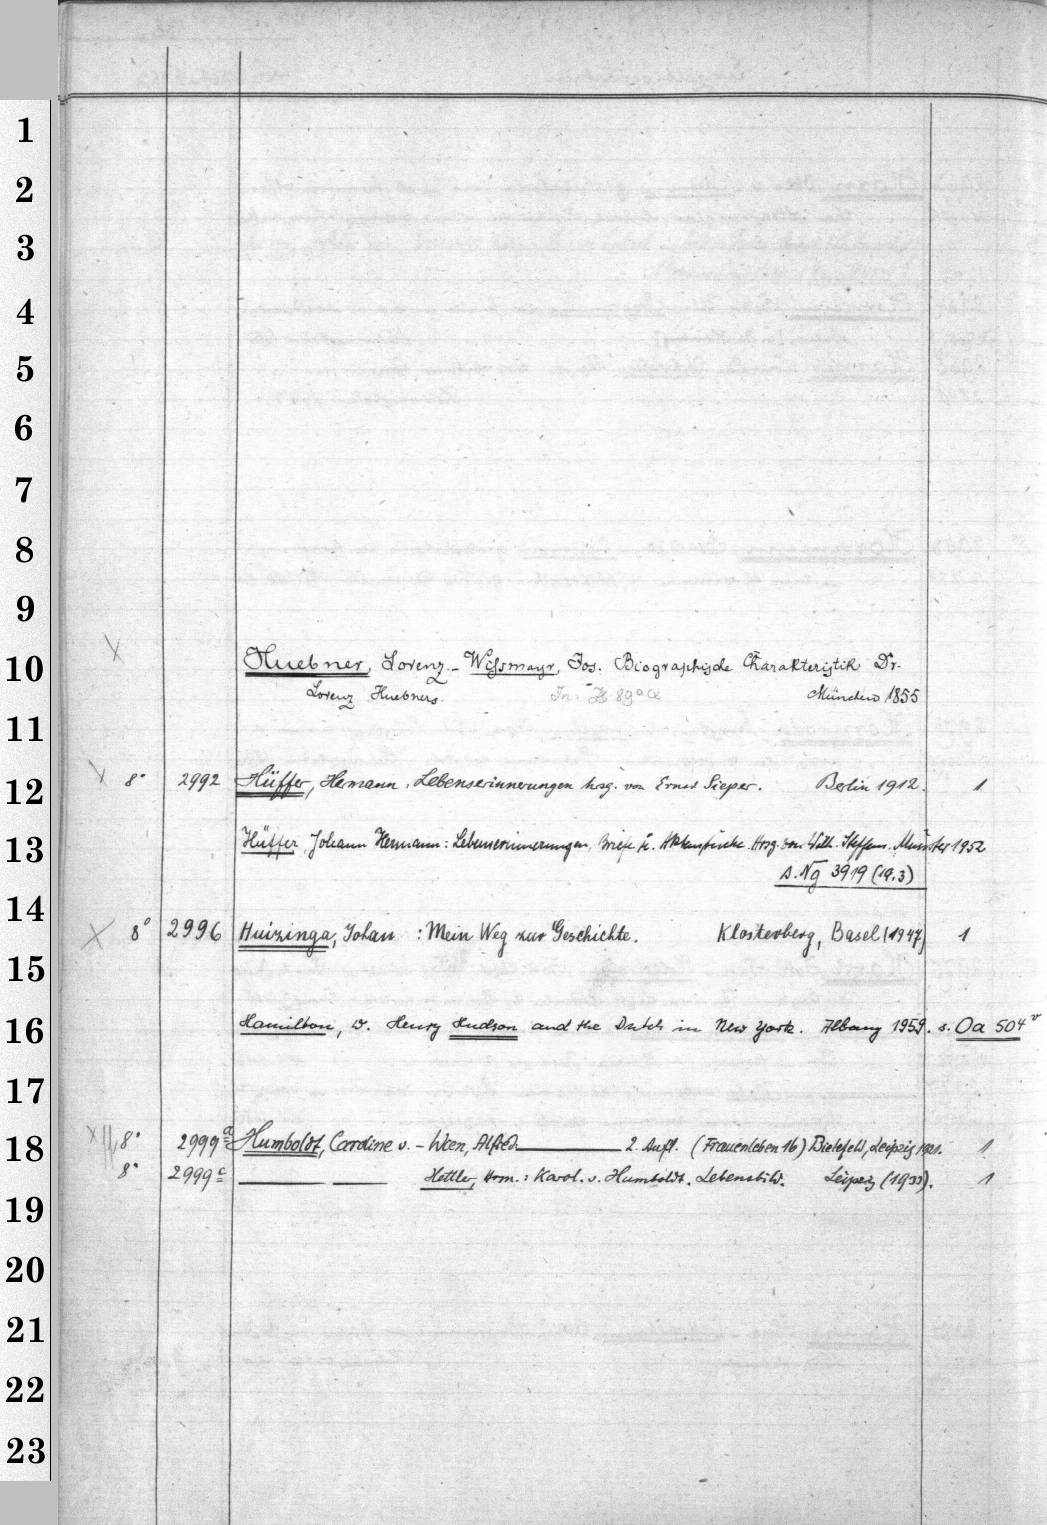 1
2
3
4
5
6
7
8
9
10 Huebner, Lorenz. – Wissmayr, Jos. Biographische Charakteristik Dr.
Lorenz Huebners. In: München 1855
11
12 8° 2992 Hüffer, Hermann, Lebenserinnerungen hrsg. von Ernst Sieper. Berlin 1912. 1
13 Hüffer, Johann Hermann: Lebenserinnerungen, Briefe u. Aktenstücke. Hrsg. von Wilh. Steffens. Münster 1952
s. Ng 3919 (19.3)
14
8° 2996 Huizinga, Johan : Mein Weg zur Geschichte. Klosterberg, Basel (1947) 1
15
16 Hamilton, W. Henry Hudson and the Dutch in New York. Albany 1959. s. Oa 504 v
17
18 8° 2999 a Humboldt, Caroline v. – Wien, Alfred 2. Aufl. (Frauenleben 16) Bielefeld, Leipzig 1921. 1
8° 2999 c Hettler, Hrm.: Karol. v. Humboldt. Lebensbild. Leipzig (1933). 1
19
20
21
22
23